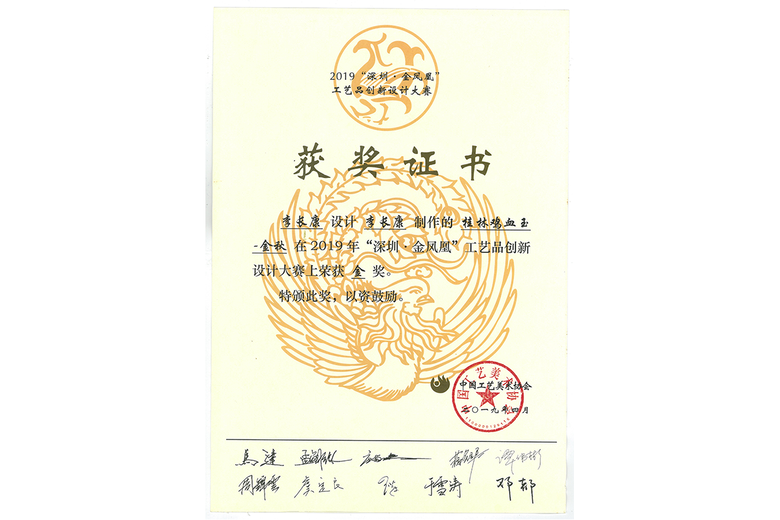 2019“深圳·金凤凰”
工艺品创新设计大赛
获奖证书
李长康 设计 李长康 制作的 桂林鸡血玉
-金秋 在2019年“深圳·金凤凰”工艺品创新
设计大赛上荣获 金 奖。
特颁此奖，以资鼓励。
中国工艺美术协会
二〇一九年四月